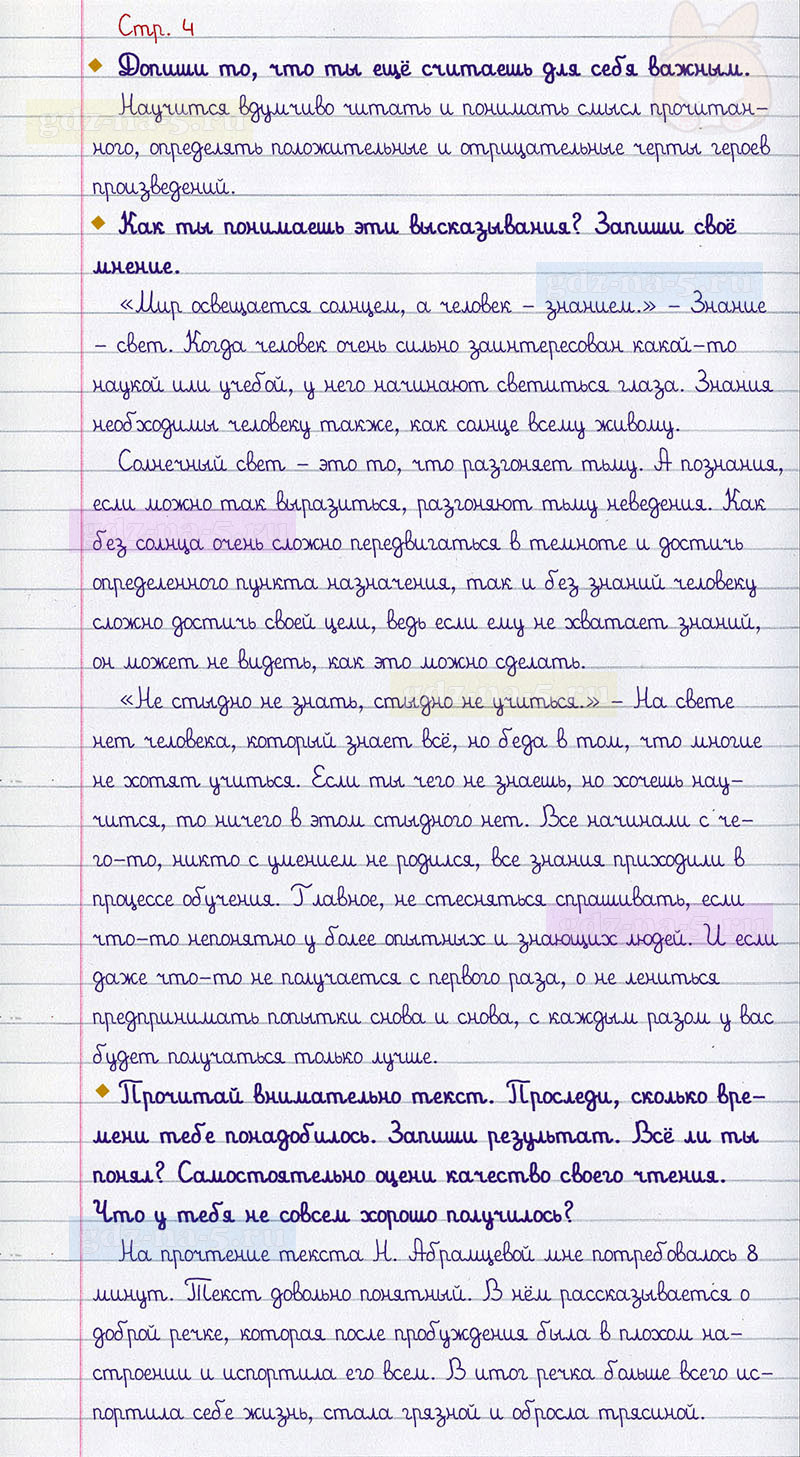 Стр. 4
Допиши то, что ты ещё считаешь для себя важным.
Научится вдумчиво читать и понимать смысл прочитан-
ного, определять положительные и отрицательные черты героев
произведений.
Как ты понимаешь эти высказывания? Запиши своё
мнение.
«Мир освещается солнцем, а человек - знанием.» - Знание
- свет. Когда человек очень сильно заинтересован какой-то
наукой или учебой, у него начинают светиться глаза. Знания
необходимы человеку также, как солнце всему живому.
Солнечный свет - это то, что разгоняет тьму. А познания,
если можно так выразиться, разгоняют тьму неведения. Как
без солнца очень сложно передвигаться в темноте и достичь
определенного пункта назначения, так и без знаний человеку
сложно достичь своей цели, ведь если ему не хватает знаний,
он может не видеть, как это можно сделать.
«Не стыдно не знать, стыдно не учиться.» - На свете
нет человека, который знает всё, но беда в том, что многие
не хотят учиться. Если ты чего не знаешь, но хочешь нау-
чится, то ничего в этом стыдного нет. Все начинали с че-
го-то, никто с умением не родился, все знания приходили в
процессе обучения. Главное, не стесняться спрашивать, если
что-то непонятно у более опытных и знающих людей. И если
даже что-то не получается с первого раза, о не лениться
предпринимать попытки снова и снова, с каждым разом у вас
будет получаться только лучше.
Прочитай внимательно текст. Проследи, сколько вре-
мени тебе понадобилось. Запиши результат. Всё ли ты
понял? Самостоятельно оцени качество своего чтения.
Что у тебя не совсем хорошо получилось?
На прочтение текста Н. Абрамцевой мне потребовалось 8
минут. Текст довольно понятный. В нём рассказывается о
доброй речке, которая после пробуждения была в плохом на-
строении и испортила его всем. В итог речка больше всего ис-
портила себе жизнь, стала грязной и обросла трясиной.
gdz-na-5.ru
gdz-na-5.ru
gdz-na-5.ru
gdz-na-5.ru
gdz-na-5.ru
gdz-na-5.ru